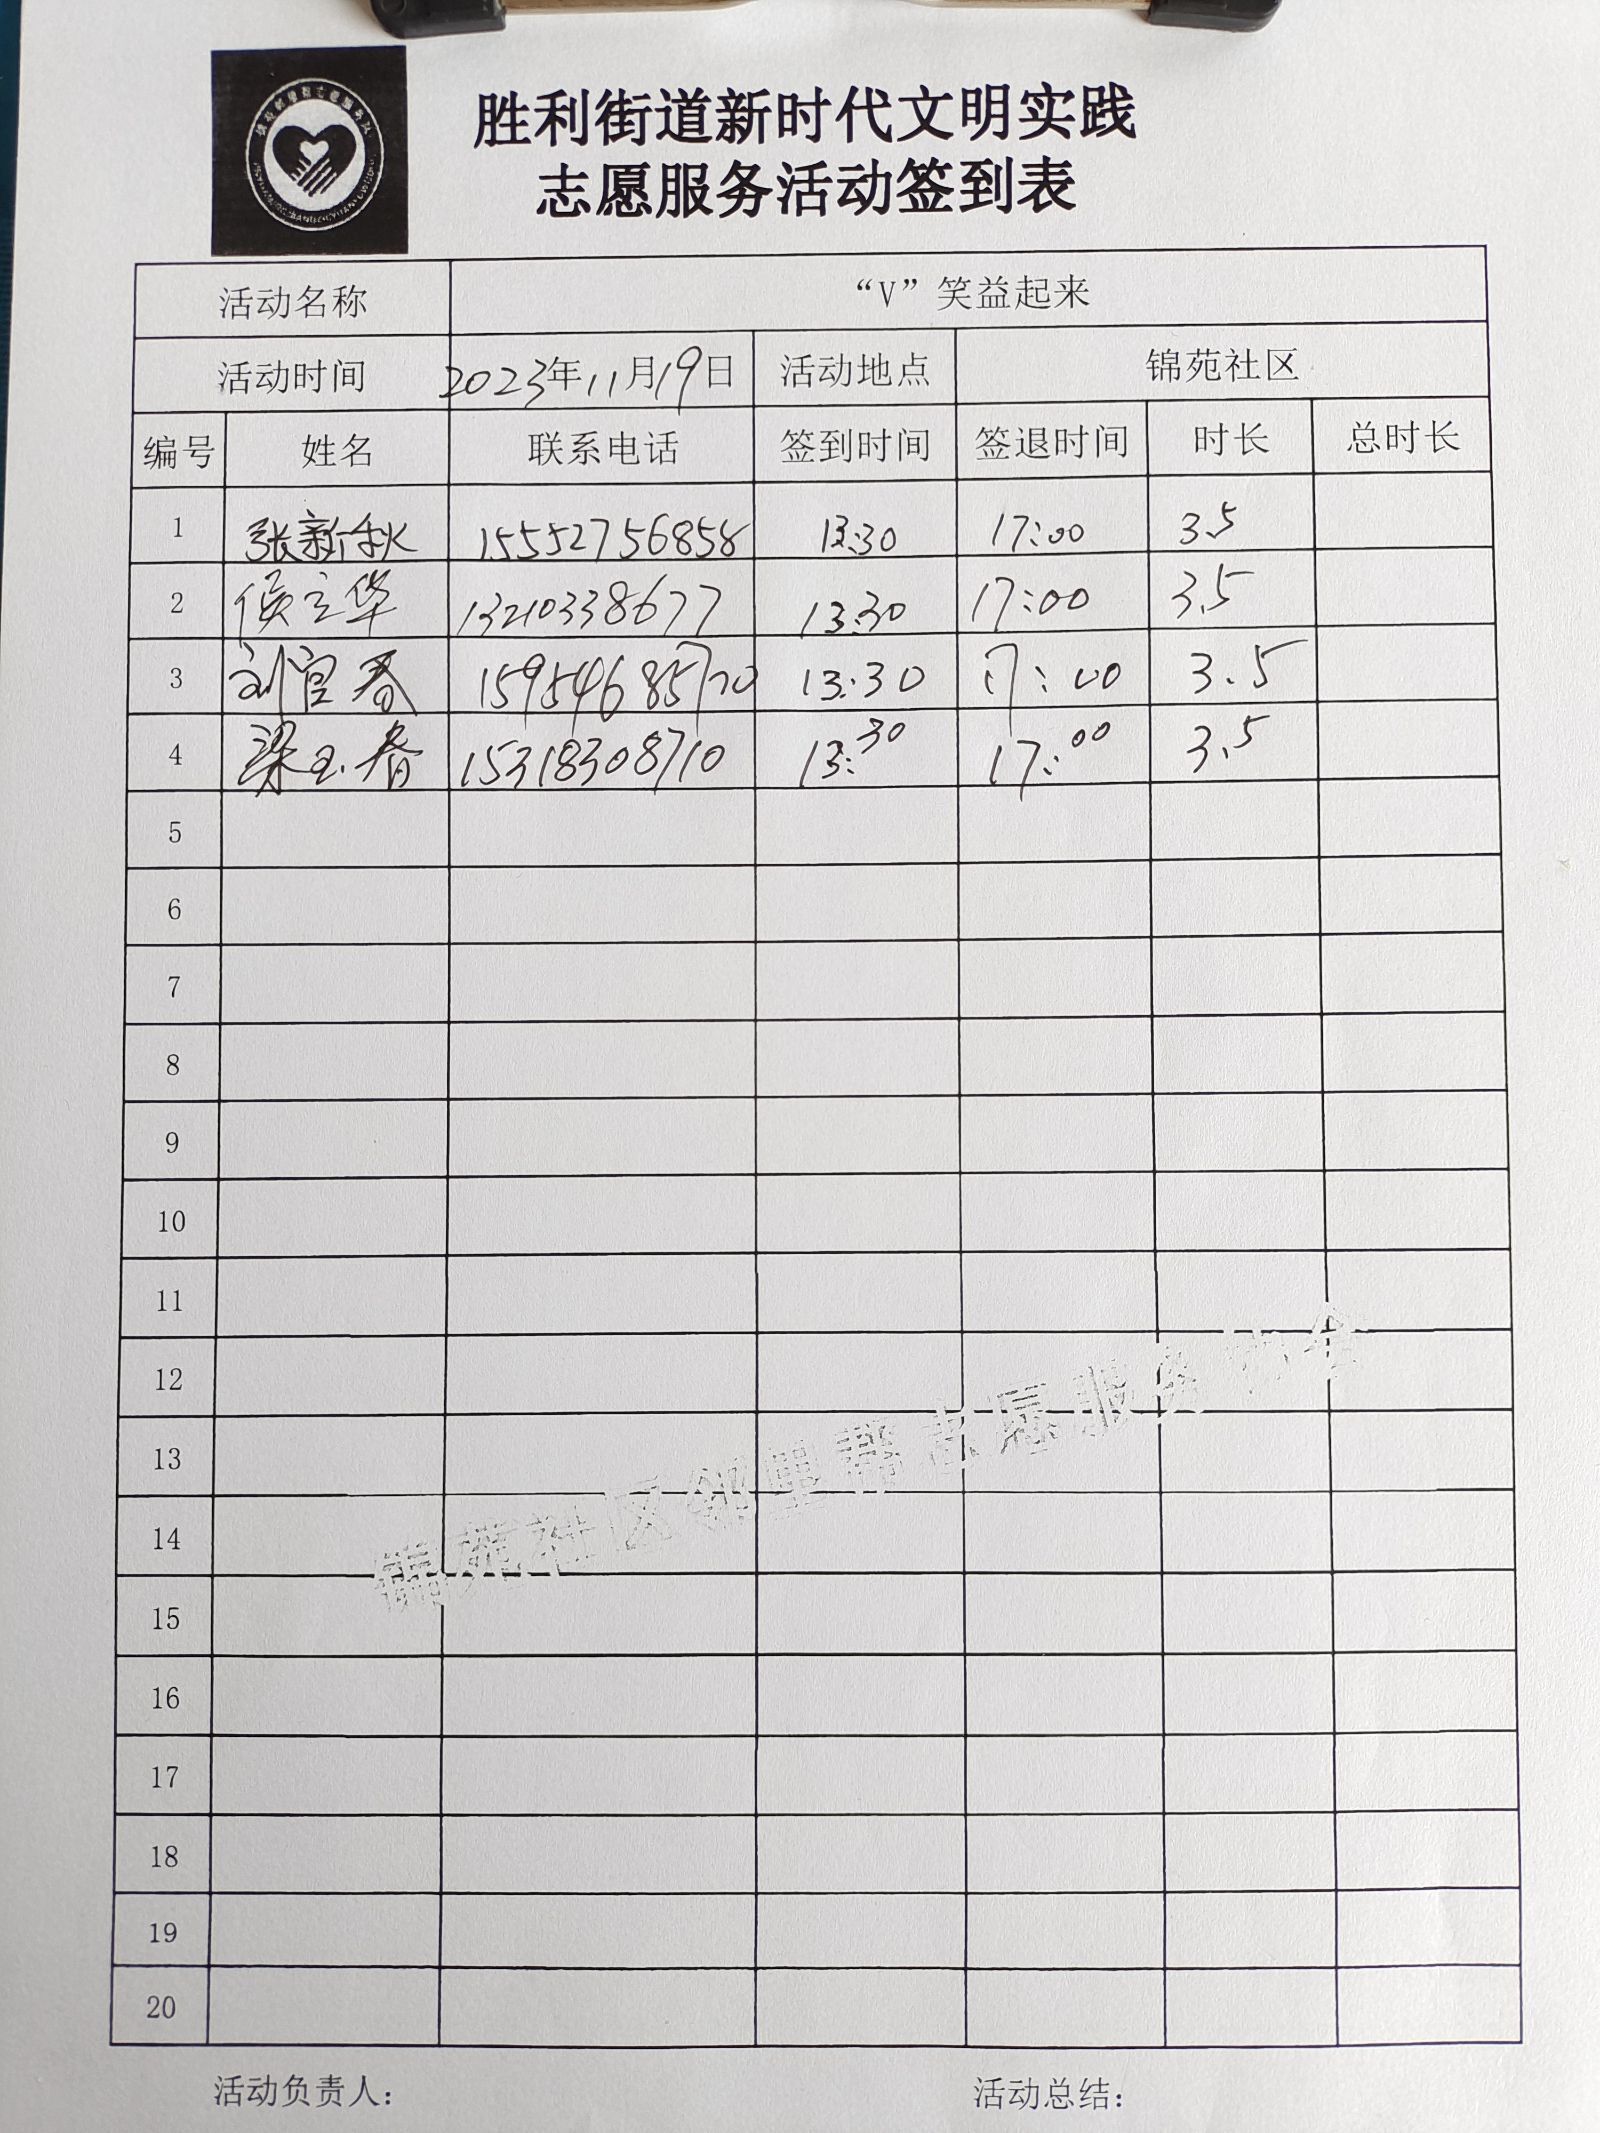 胜利街道新时代文明实践
志愿服务活动签到表
活动名称 “V”笑益起来
活动时间 2023年11月19日 活动地点 锦苑社区
编号 姓名 联系电话 签到时间 签退时间 时长 总时长
1 张新秋 15552756858 13:30 17:00 3.5
2 侯立华 13210338677 13:30 17:00 3.5
3 刘官春 15954685720 13:30 17:00 3.5
4 梁玉春 15318308710 13:30 17:00 3.5
5
6
7
8
9
10
11
12
13
14
15
16
17
18
19
20
锦苑社区邻里帮志愿服务协会
活动负责人：
活动总结：